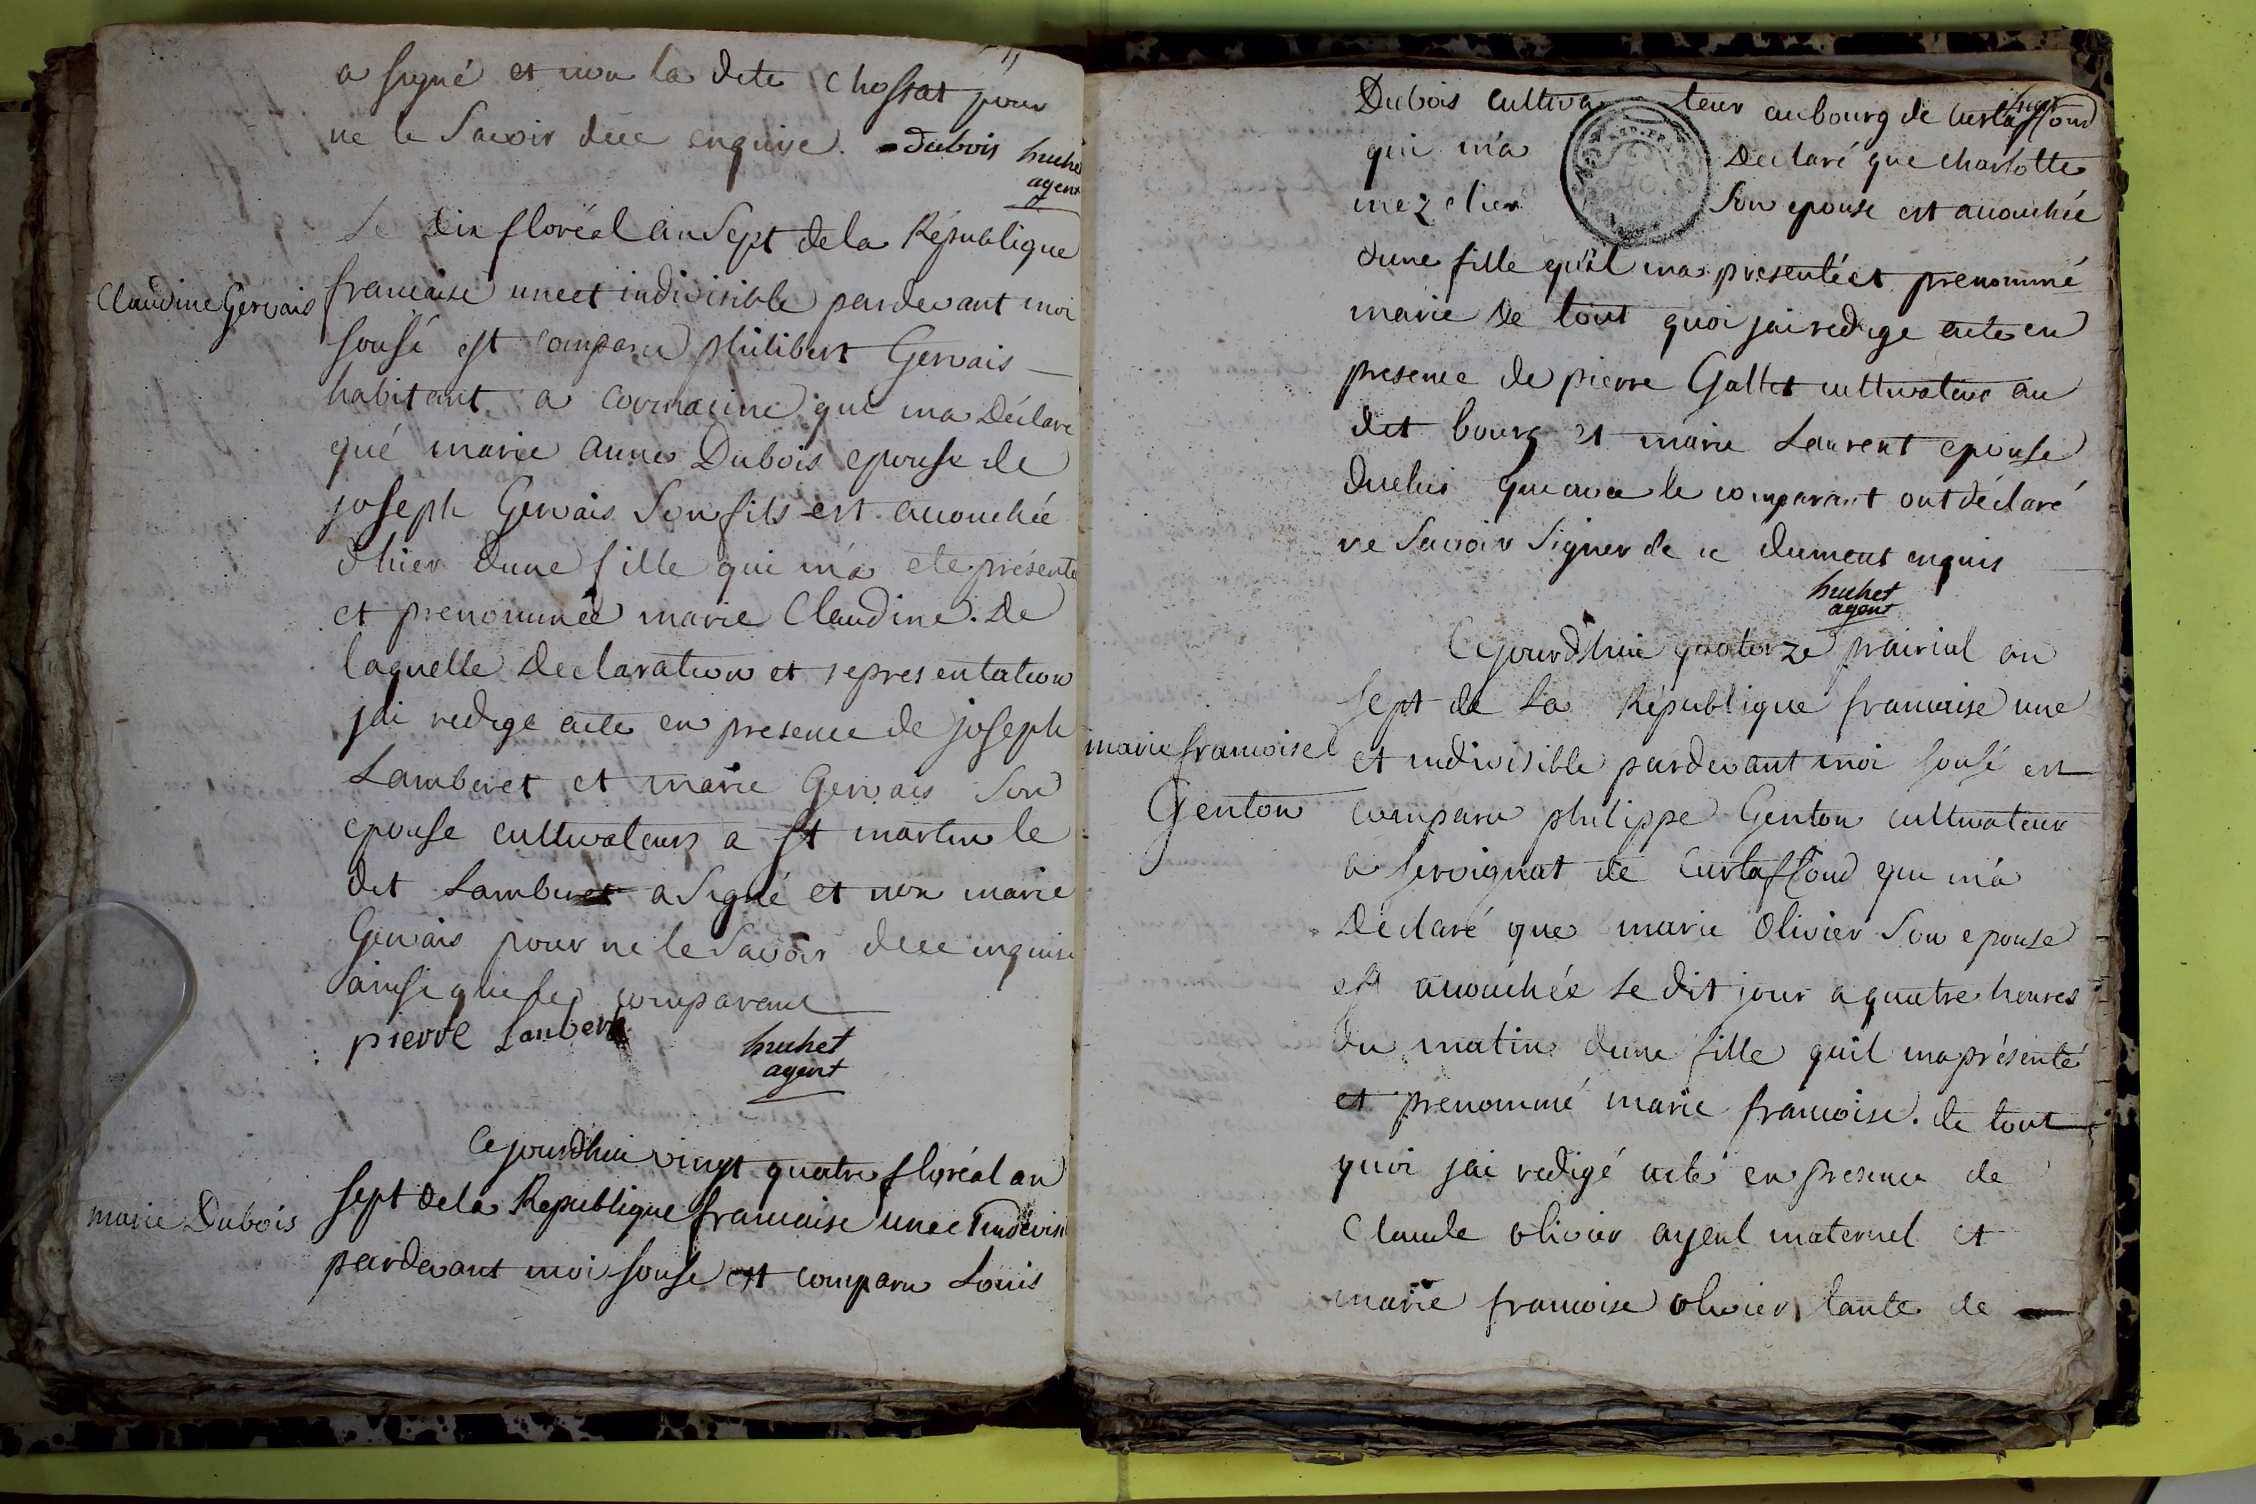 a signé et non la dite Chossat pour
ne le Savoir deue enquise. Dubois huhet
agent
Le dix floréal an Sept de la République
Claudine Gervais
francaise uneet indivisible pardevant moi
sousé est comparu philibert Gervais
habitant a cormacine qui ma Déclare
qué marie anne Dubois epouse de
joseph Gervais Son fils est acouchée
dhier dune fille qui ma ete présente
et prenommée marie Claudine. De
laquelle Declaration et representation
jai redige acte en presence de joseph
Lamberet et marie Gervais Son
epouse cultivateurs a St martin le
dit Lamberet a Signé et non marie
Gervais pour ne le Savoir deue enquise
ainsi que le comparant
pierre Lamberet
huhet
agent
Cejourdhui vingt quatre floréal an
marie Dubois
sept dela Republique francaise une et indevisi
pardevant moi sousé est comparu Louis
Dubois cultivateur au bourg de Curtaffond
qui m'a Declaré que charlotte
mezelier Son epouse est acouchée
dune fille qu'il ma presentéet prenommé
marie De tout quoi jairedige acte en
presence de pierre Gallet cultivateur au
dit bourg et marie Laurent epouse
Duclus que avec le comparant ont déclaré
ne Savoir Signer de ce dument enquis
huhet
agent
Cejourdhui quatorze prairial an
sept de La République francaise une
marie francoise
et indivisible pardevant moi sousé est
Genton
comparu philippe Genton cultivateur
a servignat de Curtaffond qui m'a
Déclaré que marie Olivier Son epouse
est acouchée Le dit jour a quatre heures
du matin dune fille quil ma présenté
et prenommé marie francoise. de tout
quoi jai redigé acte en presence de
Claude olivier ayeul maternel et
marie francoise olivier tante de